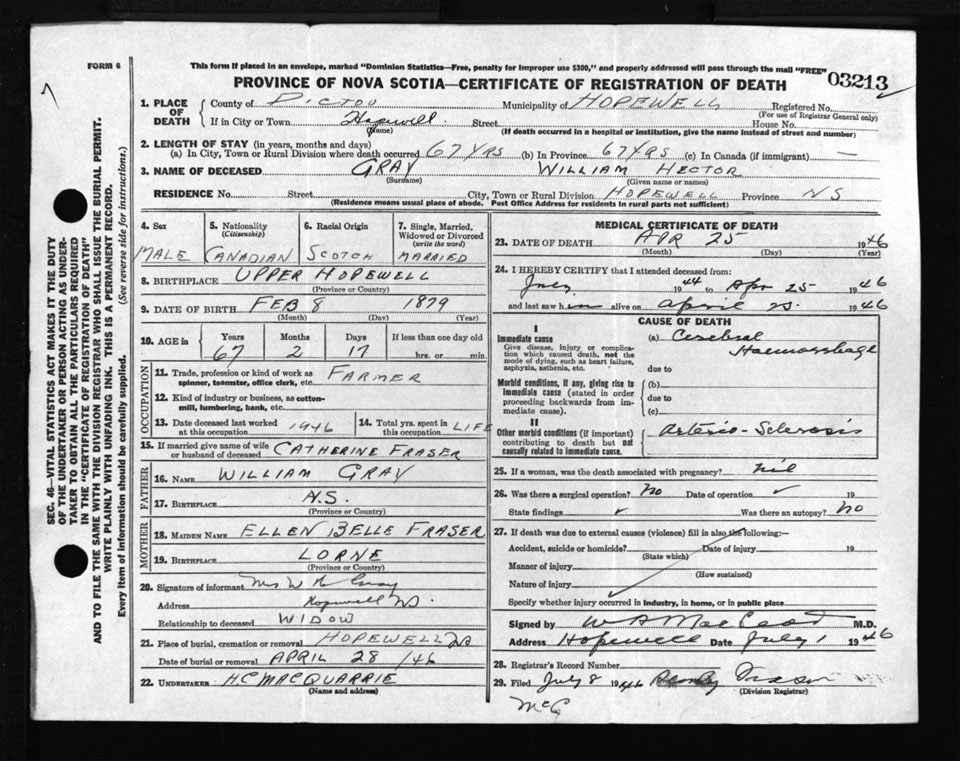 FORM 6
This form if placed in an envelope, marked "Dominion Statistics—Free, penalty for improper use $300," and properly addressed will pass through the mail "FREE"
PROVINCE OF NOVA SCOTIA—CERTIFICATE OF REGISTRATION OF DEATH
03213
1. PLACE OF DEATH
County of PICTOU Municipality of HOPEWELL Registered No.
(For use of Registrar General only)
If in City or Town Hopewell Street House No.
(Name) (If death occurred in a hospital or institution, give the name instead of street and number)
2. LENGTH OF STAY (in years, months and days)
(a) In City, Town or Rural Division where death occurred 67 YRS (b) In Province 67 YRS (c) In Canada (if immigrant) —
3. NAME OF DECEASED GRAY WILLIAM HECTOR
(Surname) (Given name or names)
RESIDENCE No. Street City, Town or Rural Division HOPEWELL Province NS
(Residence means usual place of abode. Post Office Address for residents in rural parts not sufficient)
SEC. 46—VITAL STATISTICS ACT MAKES IT THE DUTY
OF THE UNDERTAKER OR PERSON ACTING AS UNDER-
TAKER TO OBTAIN ALL THE PARTICULARS REQUIRED
IN THE "CERTIFICATE OF REGISTRATION OF DEATH"
AND TO FILE THE SAME WITH THE DIVISION REGISTRAR WHO SHALL ISSUE THE BURIAL PERMIT.
WRITE PLAINLY WITH UNFADING INK. THIS IS A PERMANENT RECORD.
Every item of information should be carefully supplied. (See reverse side for instructions.)
4. Sex 5. Nationality 6. Racial Origin 7. Single, Married,
(Citizenship) Widowed or Divorced
(write the word)
MALE CANADIAN SCOTCH MARRIED
8. BIRTHPLACE UPPER HOPEWELL
(Province or Country)
9. DATE OF BIRTH FEB 8 1879
(Month) (Day) (Year)
10. AGE in Years Months Days If less than one day old
67 2 17 hrs. or min.
OCCUPATION
11. Trade, profession or kind of work as FARMER
spinner, teamster, office clerk, etc.
12. Kind of industry or business, as cotton-
mill, lumbering, bank, etc.
13. Date deceased last worked 14. Total yrs. spent in
at this occupation 1946 this occupation LIFE
15. If married give name of wife
or husband of deceased CATHERINE FRASER
FATHER
16. NAME WILLIAM GRAY
17. BIRTHPLACE N.S.
(Province or Country)
MOTHER
18. MAIDEN NAME ELLEN BELLE FRASER
19. BIRTHPLACE LORNE
(Province or Country)
20. Signature of informant Mrs W H Gray
Address Hopewell NS.
Relationship to deceased WIDOW
21. Place of burial, cremation or removal HOPEWELL NS
Date of burial or removal APRIL 28 /46
22. UNDERTAKER H.C MACQUARRIE
(Name and address)
MEDICAL CERTIFICATE OF DEATH
23. DATE OF DEATH APR 25 1946
(Month) (Day) (Year)
24. I HEREBY CERTIFY that I attended deceased from:
July 1944 to Apr 25 1946
and last saw him alive on April 25 1946
CAUSE OF DEATH
I
Immediate cause (a) Cerebral
Give disease, injury or complica- Haemorrhage
tion which caused death, not the
mode of dying, such as heart failure,
asphyxia, asthenia, etc. due to
Morbid conditions, if any, giving rise to (b)
immediate cause (stated in order due to
proceeding backwards from im-
mediate cause). (c)
II
Other morbid conditions (if important) Arterio-Sclerosis
contributing to death but not
causally related to immediate cause.
25. If a woman, was the death associated with pregnancy? nil
26. Was there a surgical operation? No Date of operation 19
State findings Was there an autopsy? No
27. If death was due to external causes (violence) fill in also the following:—
Accident, suicide or homicide? Date of injury 19
(State which)
Manner of injury
(How sustained)
Nature of injury
Specify whether injury occurred in industry, in home, or in public place
Signed by W A MacLeod M.D.
Address Hopewell Date July 1 1946
28. Registrar's Record Number
29. Filed July 8 1946 Fraser
(Division Registrar)
McG